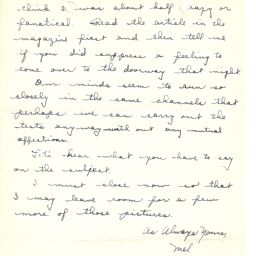 think I was about half crazy or
fanatical. Read the article in the
magazine first and then tell me
if you did suppress a feeling to
come over to the doorway that night.
Our minds seem to run so
closely in the same channels that
perhaps we can carry out the
tests anyway with out any mutual
affections.
Let's hear what you have to say
on the subject.
I must close now so that
I may leave room for a few
more of those pictures.
As Always Yours,
Mel